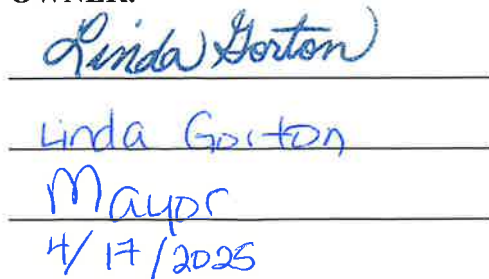 OWNER:
Linda Gorton
Linda Gorton
Mayor
4/17/2025